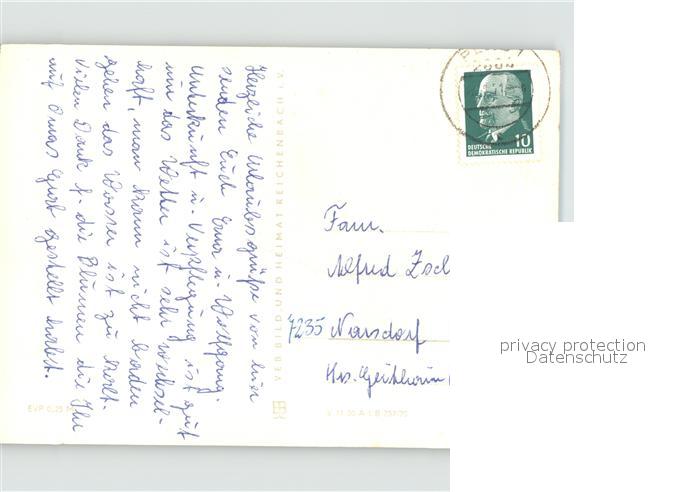 Herzliche Urlaubsgrüße von hier
senden Euch Erna u. Wolfgang.
Unterkunft u. Verpflegung ist gut
nur das Wetter ist sehr wechsel-
haft, man kann nicht baden
gehen das Wasser ist zu kalt.
Vielen Dank f. die Blumen die Ihr
auf Omas Grab gestellt habt.
EVP 0,25 M
VEB BILD UND HEIMAT REICHENBACH I. V.
DEUTSCHE
DEMOKRATISCHE REPUBLIK
10
Fam.
Alfred Zsch
7235 Narsdorf
Krs. Geithain
V 11 50 A 1 B 757/70
privacy protection
Datenschutz